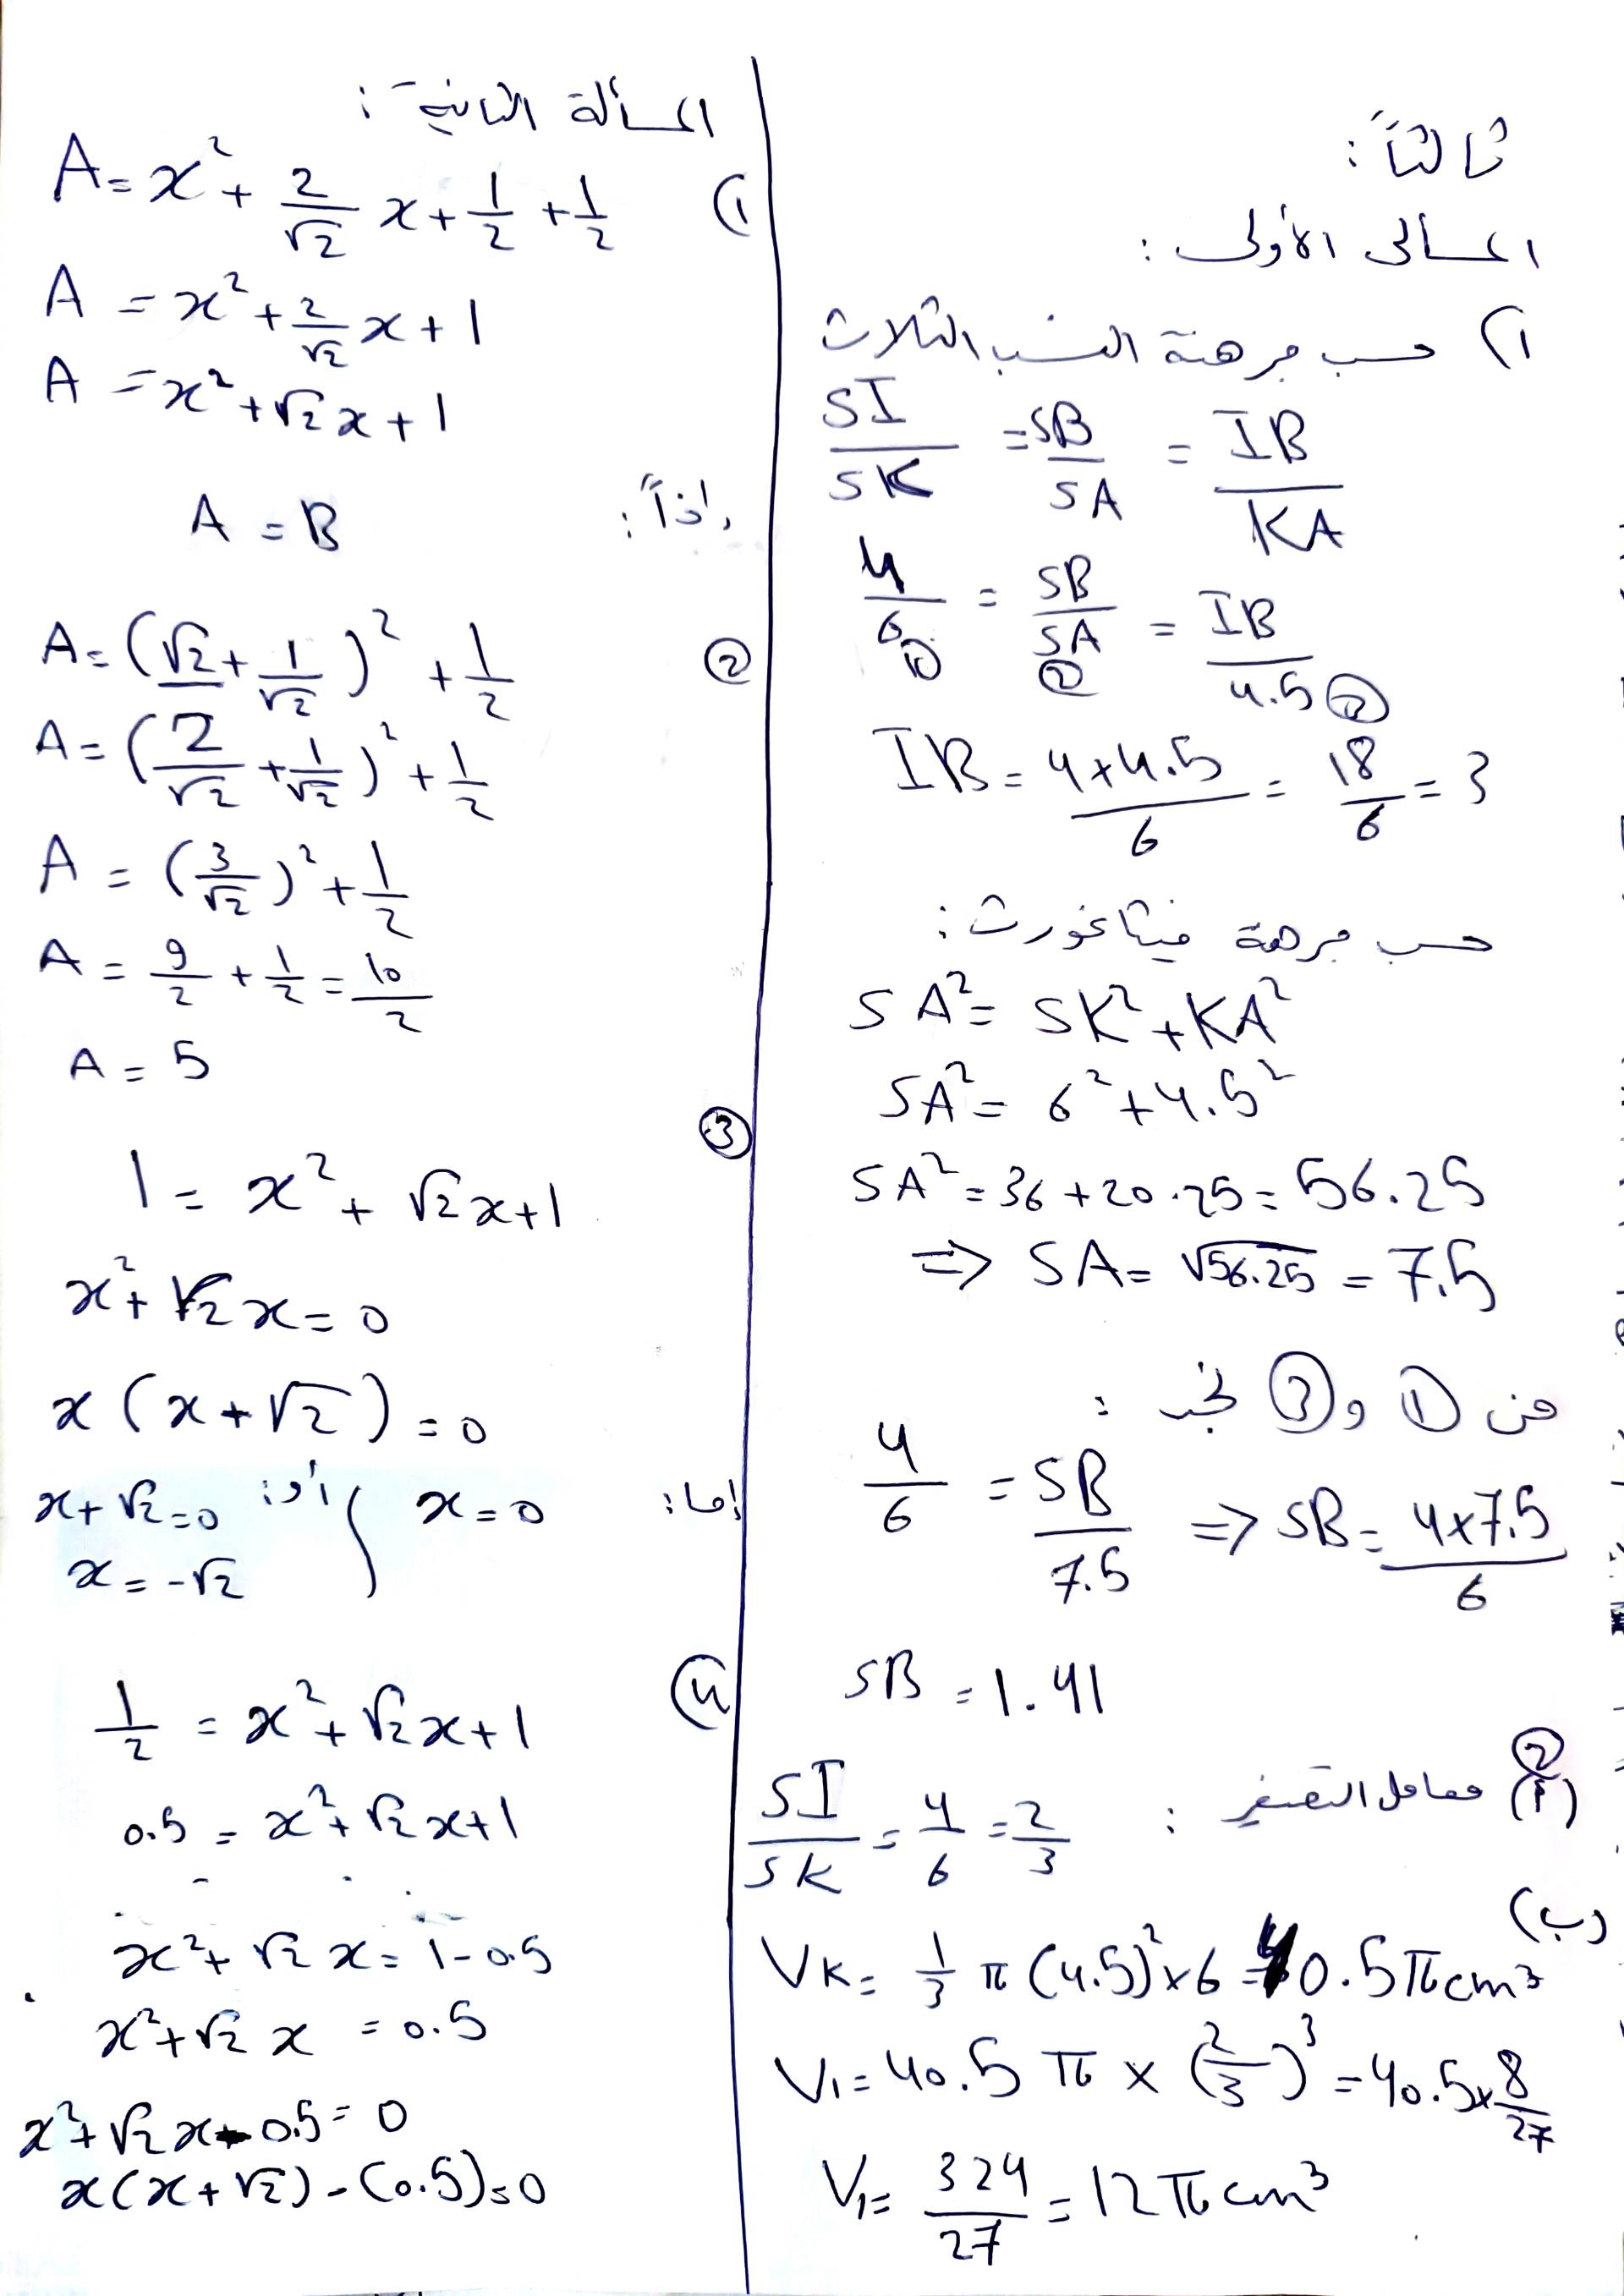 ثالثاً:
المسألة الأولى:
1) حسب مبرهنة النسب الثلاث
SI/SK = SB/SA = IB/KA
4/6 ① = SB/SA ② = IB/4.5 ③
IB = 4×4.5/6 = 18/6 = 3
حسب مبرهنة فيثاغورث:
SA² = SK² + KA²
SA² = 6² + 4.5²
SA² = 36 + 20.25 = 56.25
⇒ SA = √56.25 = 7.5
من ① و ③ نجد:
4/6 = SB/7.5 ⇒ SB = 4×7.5/6
SB = 1.41
② (أ) معامل التصغير: SI/SK = 4/6 = 2/3
(ب)
VK = 1/3 π (4.5)² × 6 = 40.5 π cm³
V₁ = 40.5 π × (2/3)³ = 40.5 × 8/27
V₁ = 324/27 = 12 π cm³
المسألة الثانية:
1) A = x² + 2/√2 x + 1/2 + 1/2
A = x² + 2/√2 x + 1
A = x² + √2 x + 1
إذاً: A = B
② A = (√2 + 1/√2)² + 1/2
A = (2/√2 + 1/√2)² + 1/2
A = (3/√2)² + 1/2
A = 9/2 + 1/2 = 10/2
A = 5
③
1 = x² + √2 x + 1
x² + √2 x = 0
x (x + √2) = 0
إما: x = 0 أو: x + √2 = 0
x = -√2
4) 1/2 = x² + √2 x + 1
0.5 = x² + √2 x + 1
x² + √2 x = 1 - 0.5
x² + √2 x = 0.5
x² + √2 x - 0.5 = 0
x (x + √2) - (0.5) = 0